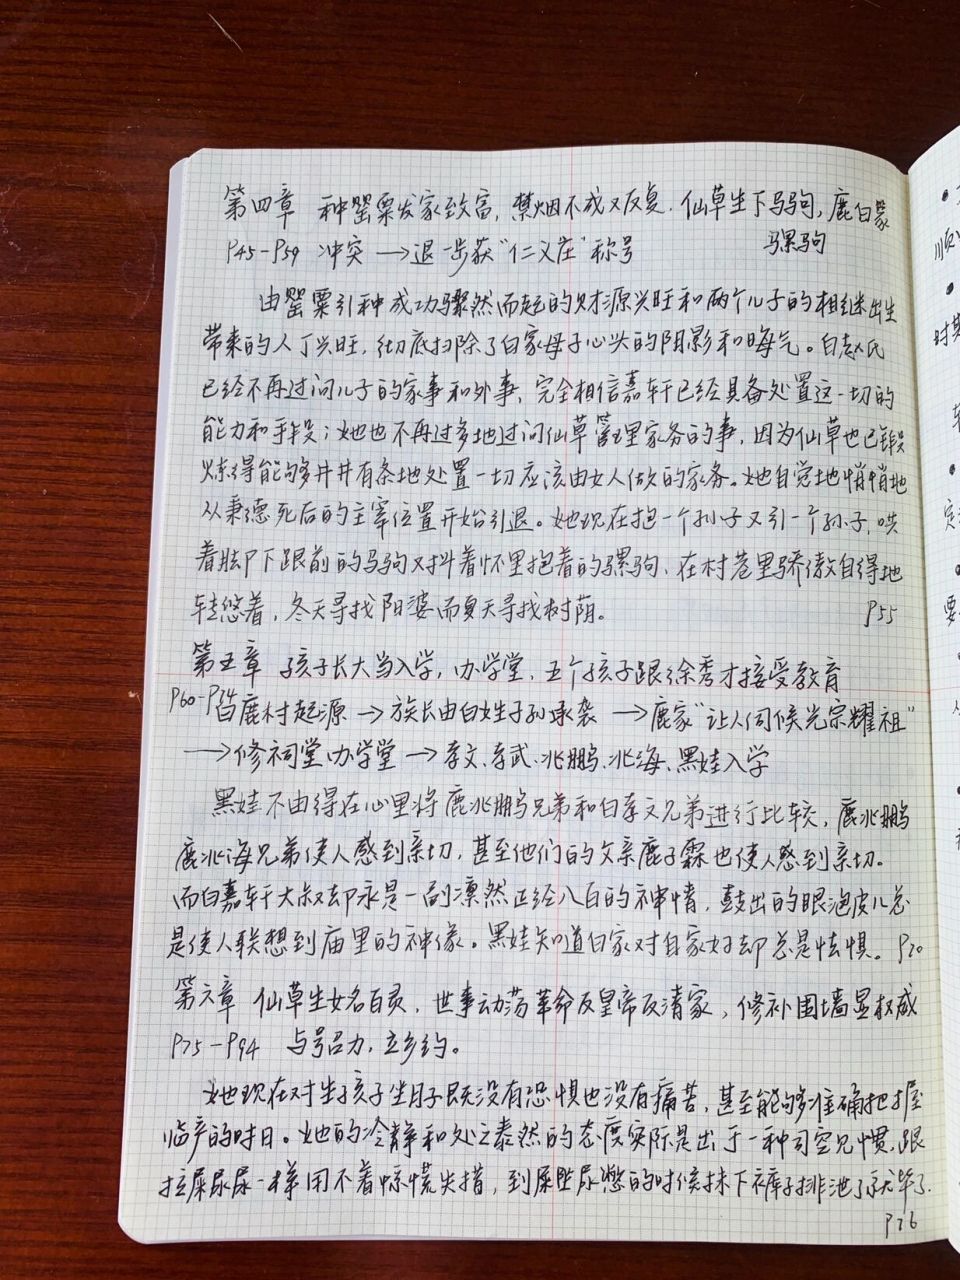 第四章 种罂粟发家致富，禁烟不成又反复．仙草生下马驹，鹿白家
骡驹
P45-P59 冲突 →退一步获“仁义庄”称号
由罂粟引种成功骤然而起的财源兴旺和两个儿子的相继出生
带来的人丁兴旺，彻底扫除了白家母子心头的阴影和晦气。白赵氏
已经不再过问儿子的家事和外事，完全相信嘉轩已经具备处置这一切的
能力和手段；她也不再过多地过问仙草管理家务的事，因为仙草也已锻
炼得能够井井有条地处置一切应该由女人做的家务。她自觉地悄悄地
从秉德死后的主宰位置开始引退。她现在抱一个孙子又引一个孙子，哄
着脚下跟前的马驹又抖着怀里抱着的骡驹，在村巷里骄傲自得地
转悠着，冬天寻找阳婆而夏天寻找树荫。 P55
第五章 孩子长大当入学，办学堂，五个孩子跟徐秀才接受教育
P60-P74 白鹿村起源 → 族长由白姓子孙承袭 →鹿家“让人伺候光宗耀祖”
→修祠堂办学堂 → 孝文、孝武、兆鹏、兆海、黑娃入学
黑娃不由得在心里将鹿兆鹏兄弟和白孝文兄弟进行比较，鹿兆鹏
鹿兆海兄弟使人感到亲切，甚至他们的父亲鹿子霖也使人感到亲切．
而白嘉轩大叔却永是一副凛然正经八百的神情，鼓出的眼泡皮儿总
是使人联想到庙里的神像。黑娃知道白家对自家好却总是怯惧。 P70
第六章 仙草生女名百灵，世事动荡革命反皇帝反清家，修补围墙显权威
P75-P94 与号召力，立乡约。
她现在对生孩子坐月子既没有恐惧也没有痛苦，甚至能够准确把握
临产的时日。她的冷静和处之泰然的态度实际是出于一种司空见惯，跟
拉屎尿尿一样用不着惊慌失措，到屎坠尿憋的时候抹下裤子排泄了就毕了．
P76